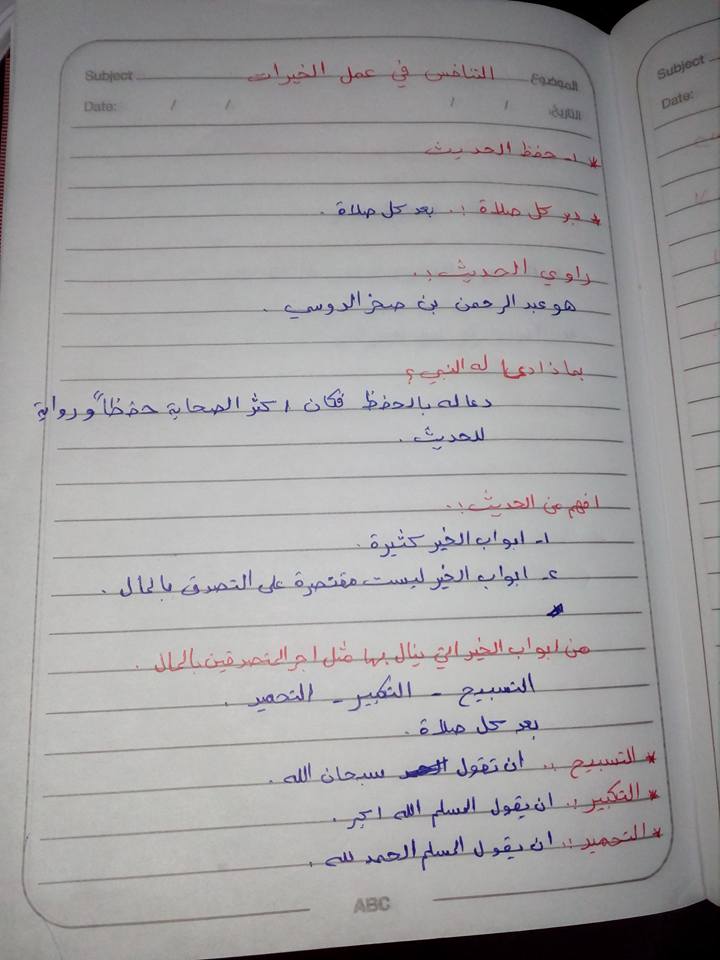 Subject التنافس في عمل الخيرات الموضوع
Date: / / / / التاريخ:
* 1- حفظ الحديث
* دبر كل صلاة :. بعد كل صلاة .
راوي الحديث :.
هو عبد الرحمن بن صخر الدوسي .
بماذا دعا له النبي ؟
دعا له بالحفظ فكان اكثر الصحابة حفظاً ورواية
للحديث .
افهم عن الحديث :.
1- ابواب الخير كثيرة .
2- ابواب الخير ليست مقتصرة على التصدق بالمال .
من ابواب الخير التي ينال بها مثل اجر المتصدقين بالمال .
التسبيح - التكبير - التحميد .
بعد كل صلاة .
* التسبيح :. ان تقول سبحان الله .
* التكبير :. ان يقول المسلم الله اكبر .
* التحميد :. ان يقول المسلم الحمد لله .
ABC
Subject
Date: